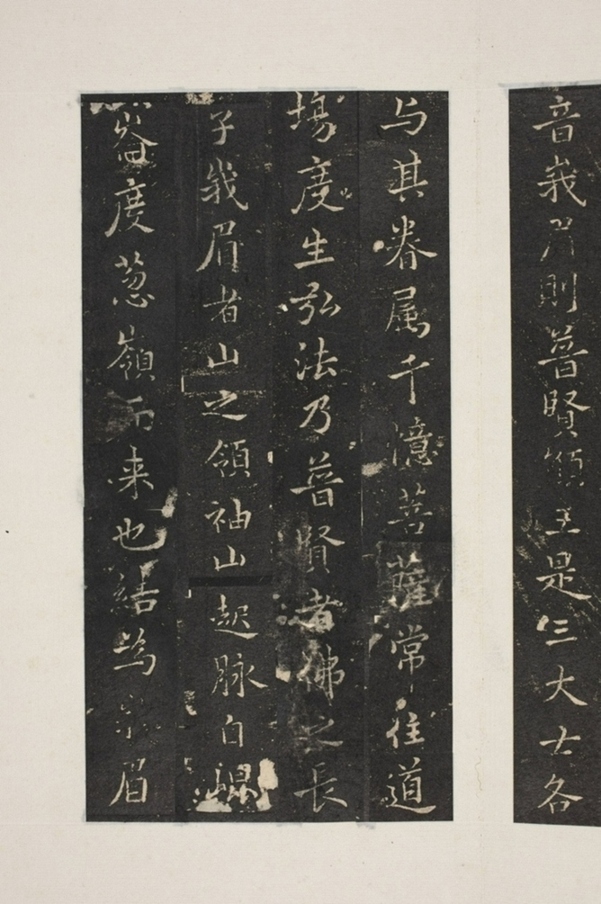 音峩眉則普賢願王是三大士各
与其眷属千億菩薩常住道
場度生弘法乃普賢者佛之長
子峩眉者山之領袖山起脉自崐
崙度葱嶺而来也結為峩眉